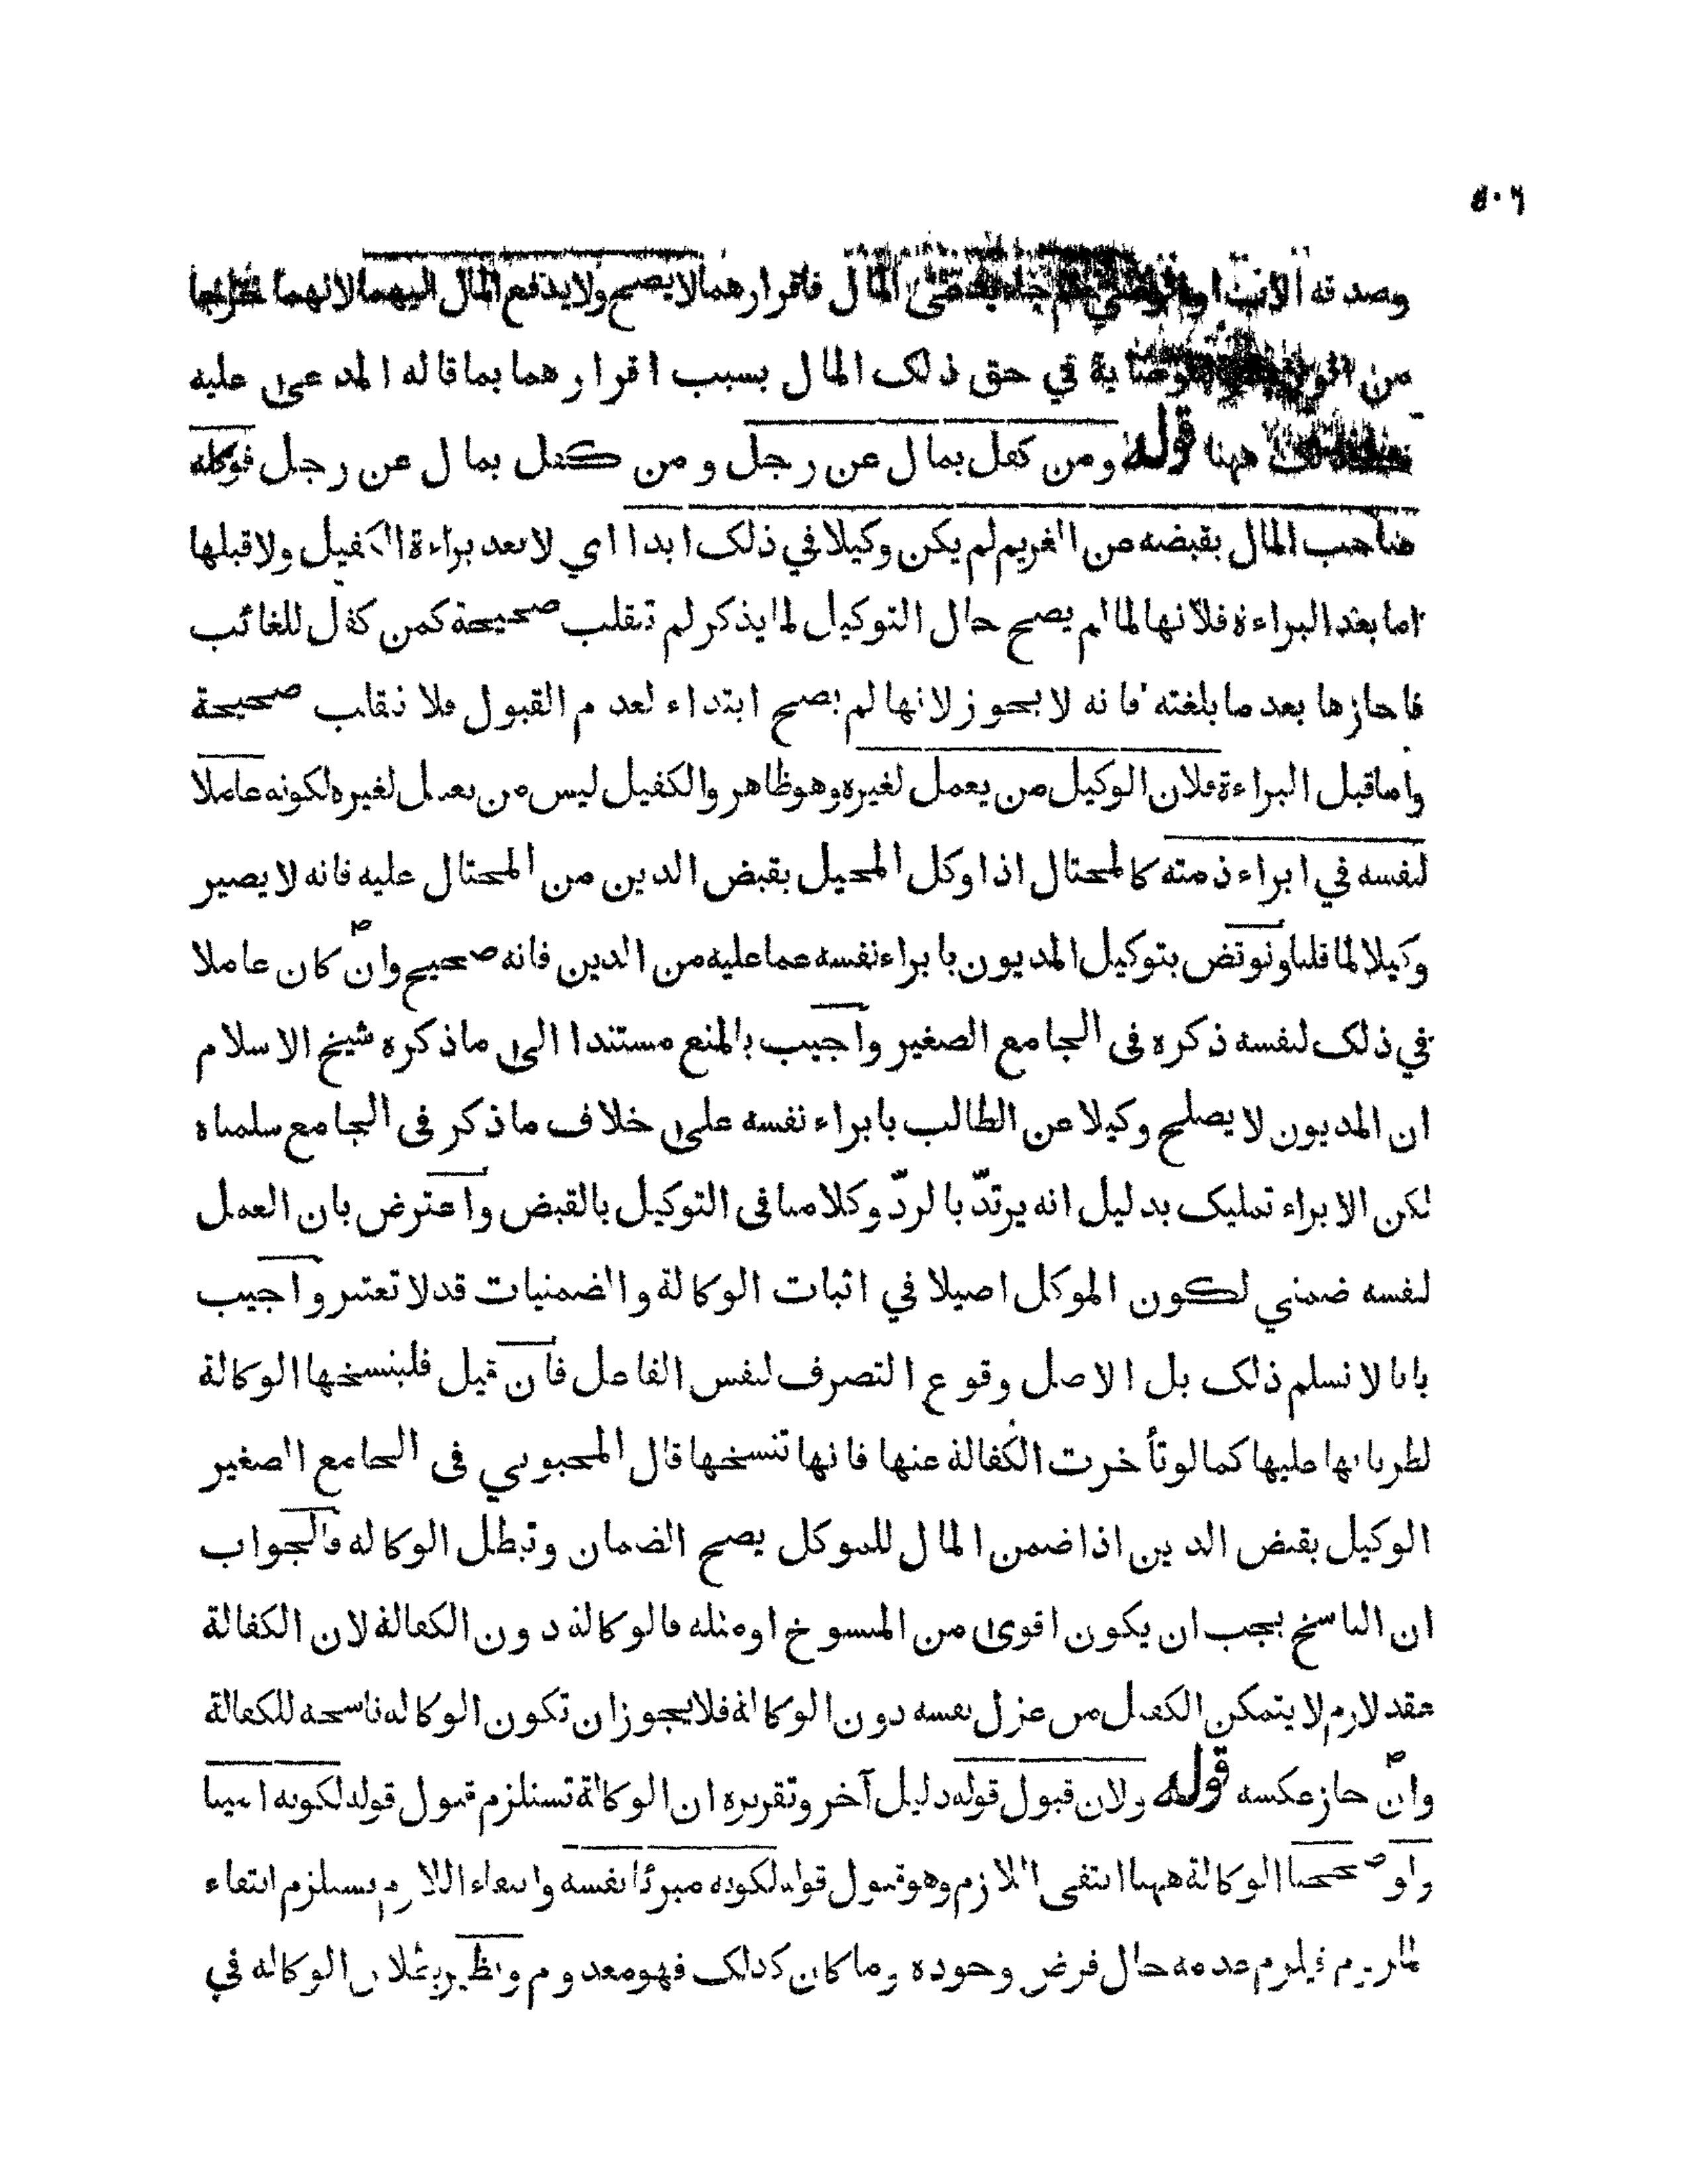 ٥٠٦
وصدقه الابن او الوصي المال فاقرارهما لا يصح ولا يدفع المال اليهما لانهما خرجا
من وصاية في حق ذلك المال بسبب اقرارهما بما قاله المدعى عليه
ههنا قوله ومن كفل بمال عن رجل ومن كفل بمال عن رجل فوكله
صاحب المال بقبضه من الغريم لم يكن وكيلا في ذلك ابدا اي لا بعد براءة الكفيل ولا قبلها
اما بعد البراءة فلانها لما لم يصح حال التوكيل لما يذكر لم تنقلب صحيحة كمن كفل للغائب
فاجازها بعد ما بلغته فانه لا يجوز لانها لم يصح ابتداء لعدم القبول فلا تنقلب صحيحة
واما قبل البراءة فلان الوكيل من يعمل لغيره وهو ظاهر والكفيل ليس من يعمل لغيره لكونه عاملا
لنفسه في ابراء ذمته كالمحتال اذا وكل المحيل بقبض الدين من المحتال عليه فانه لا يصير
وكيلا لما قلنا ونوقض بتوكيل المديون بابراء نفسه عما عليه من الدين فانه صحيح وان كان عاملا
في ذلك لنفسه ذكره فى الجامع الصغير واجيب بالمنع مستندا الى ما ذكره شيخ الاسلام
ان المديون لا يصلح وكيلا عن الطالب بابراء نفسه على خلاف ما ذكر فى الجامع سلمناه
لكن الابراء تمليك بدليل انه يرتدّ بالردّ وكلامنا فى التوكيل بالقبض واعترض بان العمل
لنفسه ضمني لكون الموكل اصيلا في اثبات الوكالة والضمنيات قد لا تعتبر واجيب
بانا لا نسلم ذلك بل الاصل وقوع التصرف لنفس الفاعل فان قيل فلينسخها الوكالة
لطريانها عليها كما لو تأخرت الكفالة عنها فانها تنسخها قال المحبوبي فى الجامع الصغير
الوكيل بقبض الدين اذا ضمن المال للموكل يصح الضمان وتبطل الوكالة والجواب
ان الناسخ يجب ان يكون اقوى من المنسوخ او مثله فالوكالة دون الكفالة لان الكفالة
عقد لازم لا يتمكن الكفيل من عزل نفسه دون الوكالة فلا يجوز ان تكون الوكالة ناسخة للكفالة
وان جاز عكسه قوله ولان قبول قوله دليل آخر وتقريره ان الوكالة تستلزم قبول قوله لكونه امينا
ولو صححنا الوكالة ههنا انتفى اللازم وهو قبول قوله لكونه مبرئا نفسه وانتفاء اللازم يستلزم انتفاء
الملزوم فيلزم عدمه حال فرض وجوده وما كان كذلك فهو معدوم ونظير بطلان الوكالة في